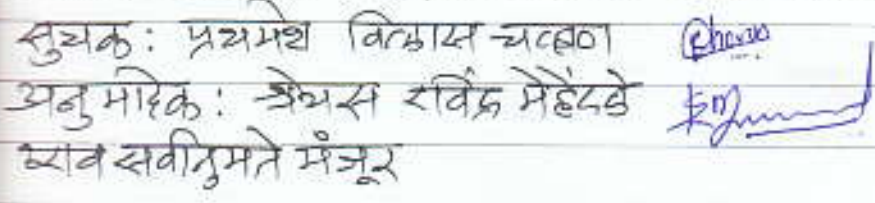 सुचक: प्रथमेश विलास चव्हाण
अनुमोदक: श्रेयस रविंद्र मेहेंदळे
ठराव सर्वानुमते मंजूर